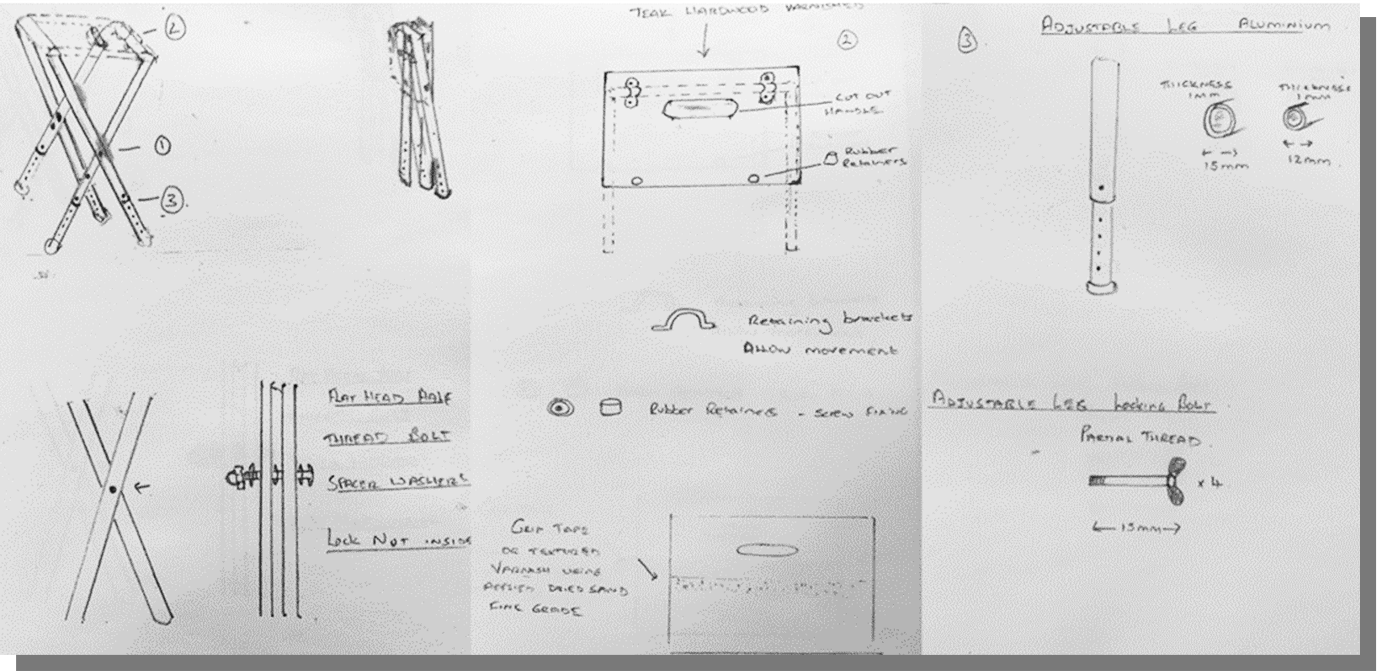 2
1
3
FLAT HEAD HALF
THREAD BOLT
SPACER WASHERS
LOCK NOT INSIDE
TEAK HARDWOOD VARNISHED
2
CUT OUT
HANDLE
RUBBER
RETAINERS
Retaining brackets
ALLOW movement
Rubber Retainers - SCREW FIXING
GRIP TAPE
OR TEXTURED
VARNASH USING
APPLIED DRIED SAND
FINE GRADE
3
ADJUSTABLE LEG ALUMINIUM
THICKNESS
1mm
15mm
THICKNESS
1mm
12mm
ADJUSTABLE LEG Locking BOLT
PARTIAL THREAD
x 4
15mm